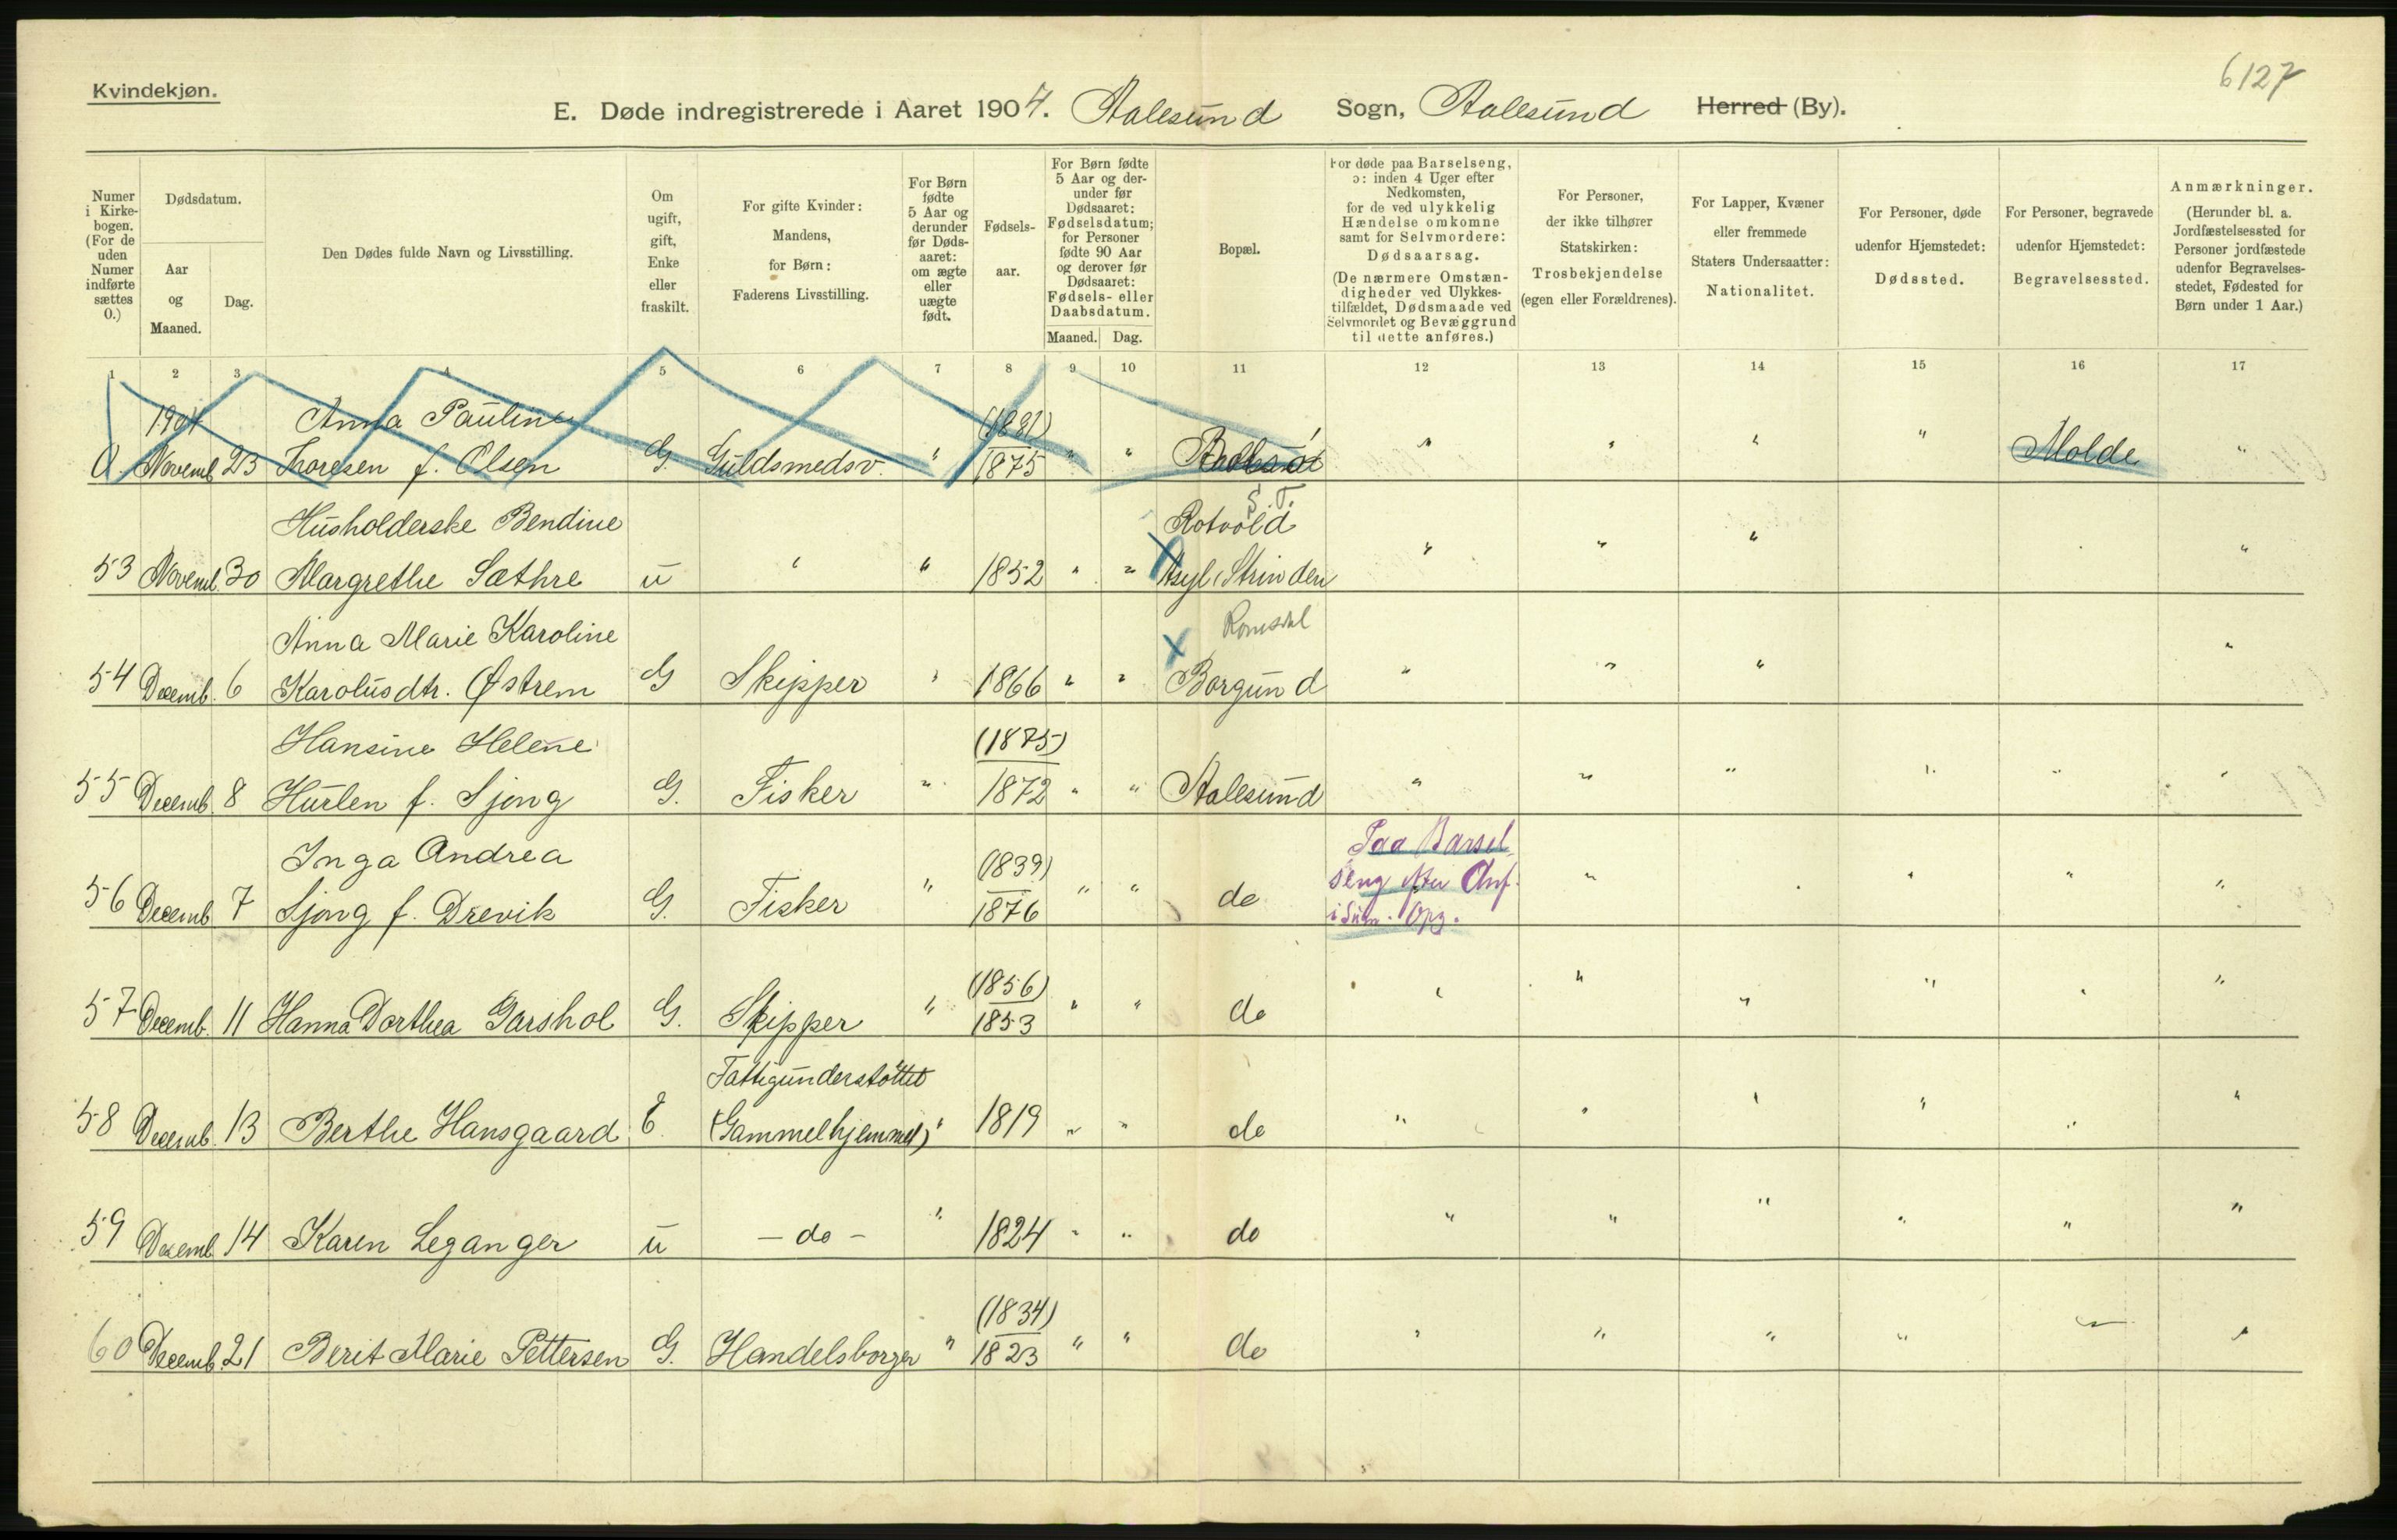 6127
Kvindekjøn.
E. Døde indregistrerede i Aaret 1904. Aalesund Sogn, Aalesund Herred (By).
Numer i Kirkebogen. (For de uden Numer indførte sættes 0.)
Dødsdatum.
Aar og Maaned.
Dag.
Den Dødes fulde Navn og Livsstilling.
Om ugift, gift, Enke eller fraskilt.
For gifte Kvinder: Mandens, for Børn: Faderens Livsstilling.
For Børn fødte 5 Aar og derunder før Dødsaaret: om ægte eller uægte født.
Fødselsaar.
For Børn fødte 5 Aar og derunder før Dødsaaret: Fødselsdatum; for Personer fødte 90 Aar og derover før Dødsaaret: Fødsels- eller Daabsdatum.
Maaned. Dag.
Bopæl.
For døde paa Barselseng, ɔ: inden 4 Uger efter Nedkomsten, for de ved ulykkelig Hændelse omkomne samt for Selvmordere: Dødsaarsag. (De nærmere Omstændigheder ved Ulykkestilfældet, Dødsmaade ved Selvmordet og Bevæggrund til dette anføres.)
For Personer, der ikke tilhører Statskirken: Trosbekjendelse (egen eller Forældrenes).
For Lapper, Kvæner eller fremmede Staters Undersaatter: Nationalitet.
For Personer, døde udenfor Hjemstedet: Dødssted.
For Personer, begravede udenfor Hjemstedet: Begravelsessted.
Anmærkninger. (Herunder bl. a. Jordfæstelsessted for Personer jordfæstede udenfor Begravelsesstedet, Fødested for Børn under 1 Aar.)
1 2 3 4 5 6 7 8 9 10 11 12 13 14 15 16 17
1904 Anna Pauline (1881)
0. Novemb 23 Thoresen f. Olsen G. Guldsmedsv. " 1875 " " " " " " Molde "
S. T.
Husholderske Bendine Rotvold
53 Novemb. 30 Margrethe Sæthre u " " 1852 " " Asyl, Strinden " " " "
Anna Marie Karoline Romsdal
54 Decemb. 6 Karolusdtr. Østrem G Skipper " 1866 " " Borgund " " " "
Hansine Helene (1875)
55 Decemb. 8 Hurlen f. Sjong G. Fisker " 1872 " " Aalesund " " " " " "
Inga Andrea (1839) Paa Barsel
56 Decemb 7 Sjong f. Drevik G. Fisker " 1876 " " do seng efter Anf. " " " " "
(1856)
57 Decemb. 11 Hanna Dorthea Garshol G. Skipper " 1853 " " do " " " " " "
Fattigunderstøttet
58 Decemb. 13 Berthe Hansgaard E. (Gammelhjemmet) " 1819 " " do " " " " " "
59 Decemb 14 Karen Leganger u - do - " 1824 " " do " " " " " "
(1834)
60 Decemb. 21 Berit Marie Pettersen G. Handelsborger " 1823 " " do " " " " " "